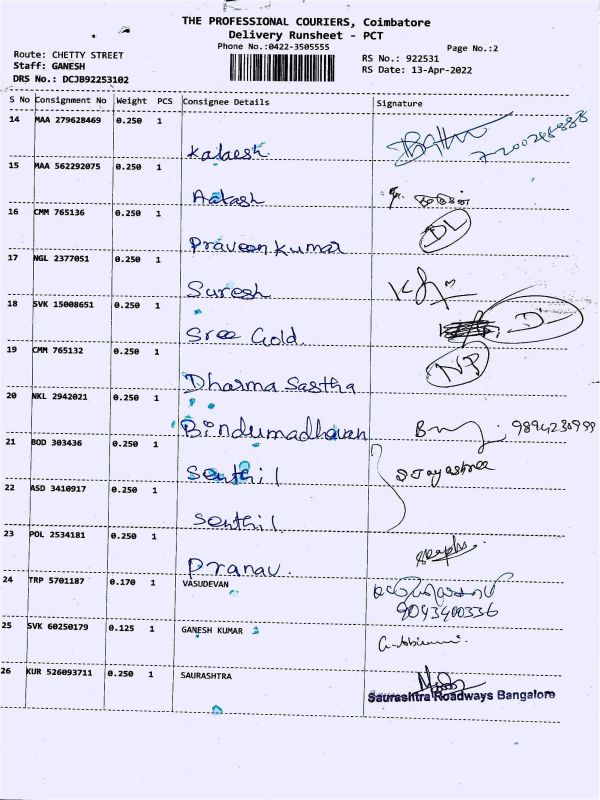 THE PROFESSIONAL COURIERS, Coimbatore
Delivery Runsheet - PCT
Phone No.:0422-3505555
Page No.:2
Route: CHETTY STREET
Staff: GANESH
DRS No.: DCJB92253102
RS No.: 922531
RS Date: 13-Apr-2022
S No Consignment No Weight PCS Consignee Details Signature
14 MAA 279628469 0.250 1
Kalaesh
15 MAA 562292075 0.250 1
Aakash
16 CMM 765136 0.250 1
Praveen kumar DL
17 NGL 2377051 0.250 1
Suresh
18 SVK 15008651 0.250 1
Sree Gold. D
19 CMM 765132 0.250 1
Dharma Sastha NP
20 NKL 2942021 0.250 1
Bindumadhavan 9894230999
21 BOD 303436 0.250 1
Senthil
22 ASD 3410917 0.250 1
Senthil
23 POL 2534181 0.250 1
Pranav.
24 TRP 5701187 0.170 1 VASUDEVAN
9043400336
25 SVK 60250179 0.125 1 GANESH KUMAR
26 KUR 526093711 0.250 1 SAURASHTRA
Saurashtra Roadways Bangalore